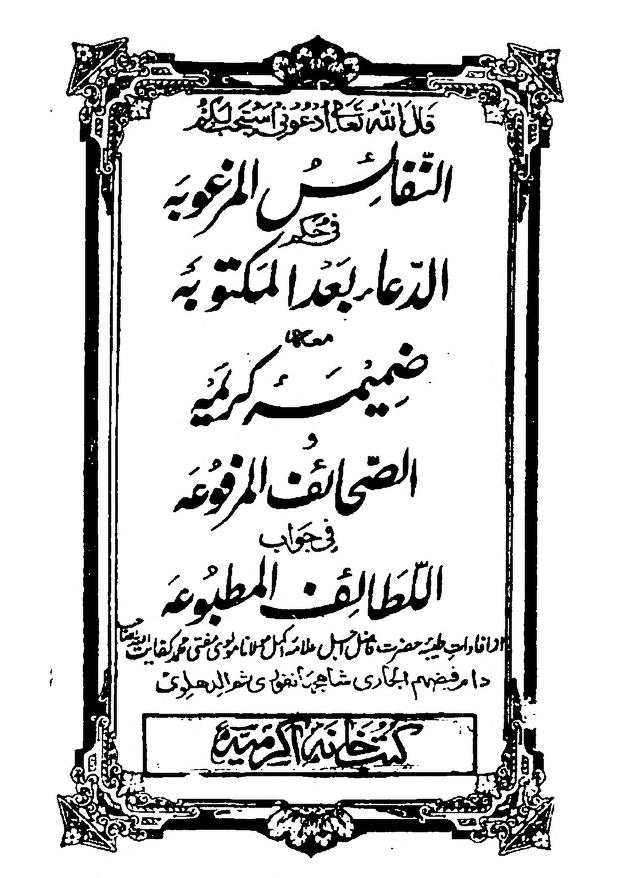 قَالَ اللّٰهُ تَعَالٰى اُدْعُوْنِىْ اَسْتَجِبْ لَكُمْ
النّفائسُ المرغوبَه
فى حُكمِ
الدّعاء بَعْدَ المكتوبَة
معها
ضمِيْمَهٔ كريميَه
و
الصّحائف المرفُوعَه
فِى جَوابِ
اللّطائِف المطبُوعَه
از افاداتِ طيبه حضرت فاضل اجل علامه اكمل مولانا مولوى مفتى محمد كفايت الله صاحب
دام فيضهم الجارى شاهجهانفورى ثم الدهلوى
كتب خانه اكرميه